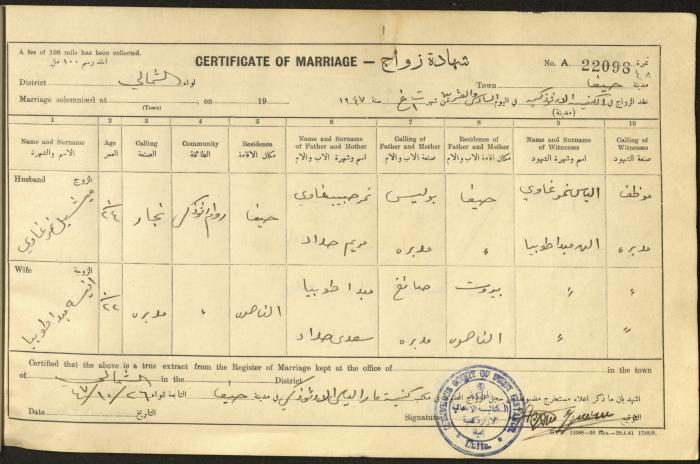 A fee of 100 mils has been collected.
اخذ رسم ١٠٠ مل
CERTIFICATE OF MARRIAGE – شهادة زواج
No. A 22096 نمرة
District الشمالي لواء
Town حيفا مدينة
Marriage solemnised at , on 19
(Town)
عقد الزواج في الكنيسة الارثوذكسية في اليوم السادس والعشرين شهر سنة ١٩٤٧
(مدينة)
1 2 3 4 5 6 7 8 9 10
Name and Surname Age Calling Community Residence Name and Surname of Father and Mother Calling of Father and Mother Residence of Father and Mother Name and Surname of Witnesses Calling of Witnesses
الاسم والشهرة العمر الصنعة الطائفة مكان الاقامة اسم وشهرة الاب والام صنعة الاب والام مكان اقامة الاب والام اسم وشهرة الشهود صنعة الشهود
Husband الزوج
ميشيل نمر غاوي ٢٤ نجار روم ارثوذكس حيفا نمر حبيب غاوي بوليس حيفا الياس نمر غاوي موظف
مريم حداد مدبره " مدبره
Wife الزوجة
انيسه طوبيا ٢٢ مدبره " الناصره طوبيا صائغ بيروت " "
سعدى حداد مدبره الناصره " "
Certified that the above is a true extract from the Register of Marriage kept at the office of in the town
of in the District
الشمالي التابعة للواء حيفا في مدينة كنيسة مار الياس الارثوذكسي مكتب
اشهد بان ما ذكر اعلاه مستخرج
Date ٢٦/١٠/٤٧ التاريخ
Signature التوقيع
RELIGIOUS COURT OF FIRST INSTANCE
Haifa